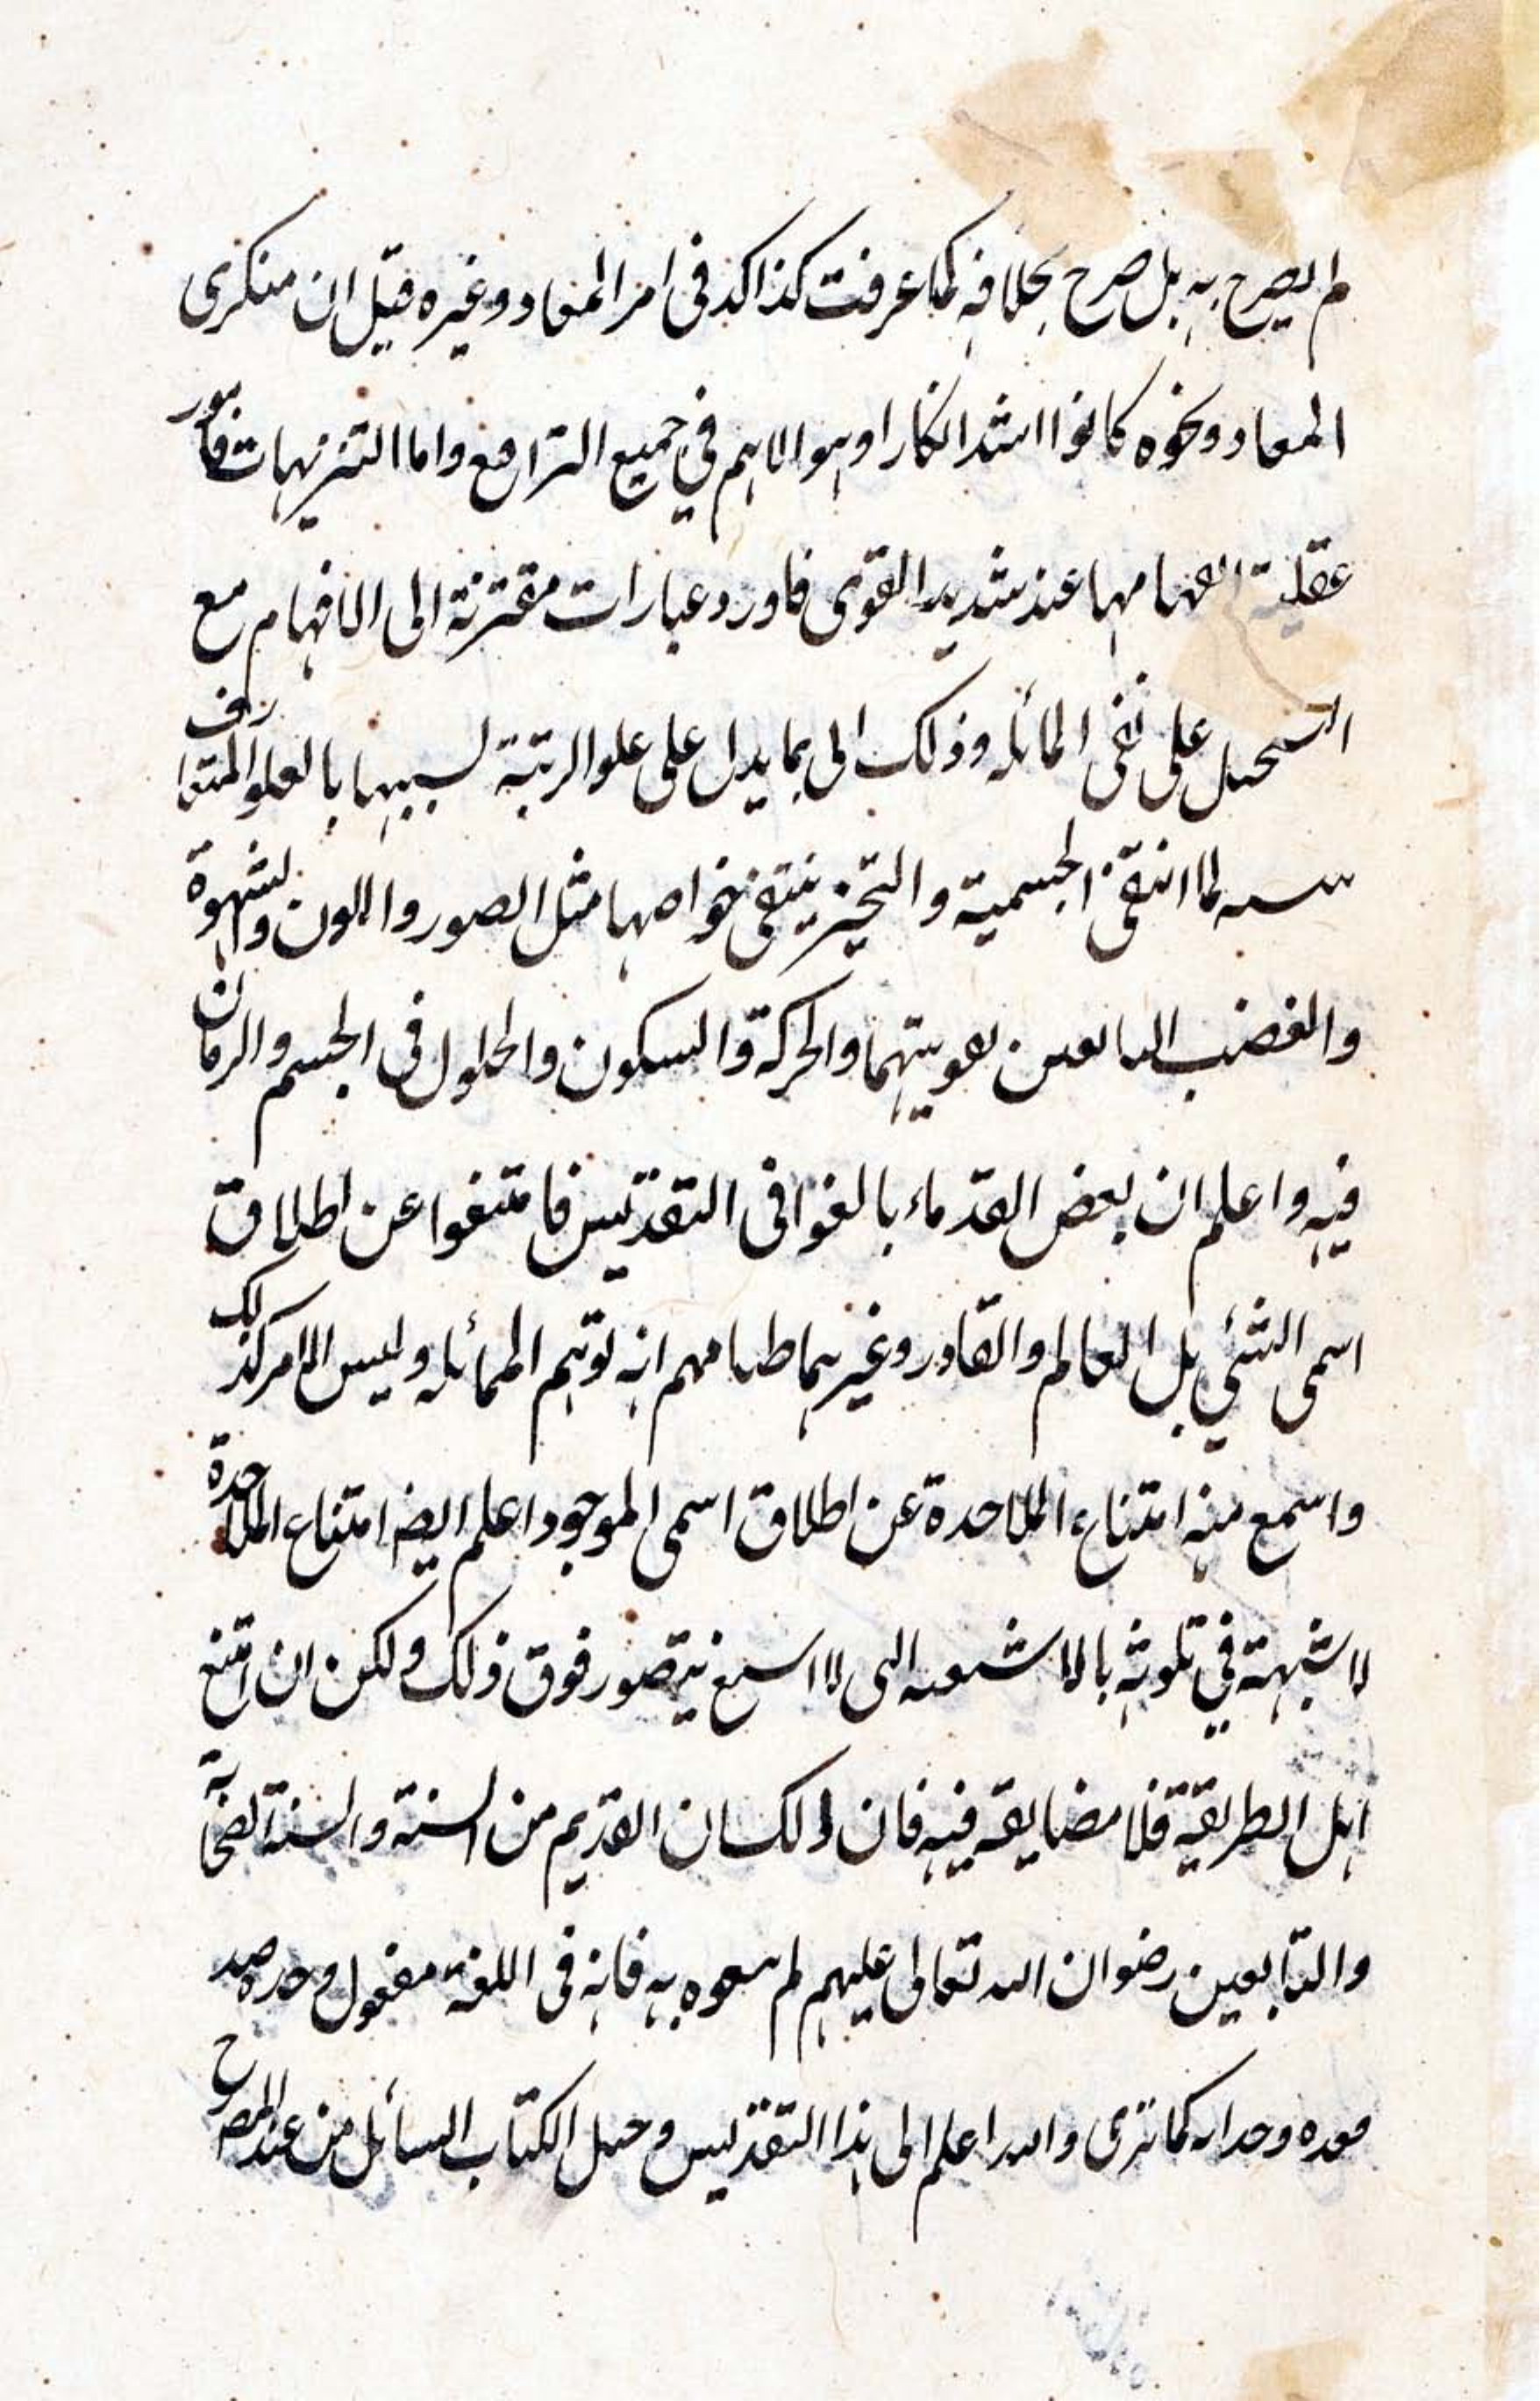 لم يصرح به بل صرح بخلافه كما عرفت كذا اكد فى امر المعاد وغيره قيل ان منكرى
المعاد ونحوه كانوا اشد انكارا وهو الاهم في جميع الشرائع واما التنزيهات فامور
عقلية عند شديد القوى فاورد عبارات مقترنة الى الافهام مع
على نفى المماثلة وذلك الى بما يدل على علو الرتبة بالعلو المتعارف
لما انتفى الجسمية والتحيز ينتفى خواصها مثل الصور واللون والشهوة
والغضب والحركة والسكون والحلول فى الجسم والزمان
فيه واعلم ان بعض القدماء بالغوا فى التقديس فامتنعوا عن اطلاق
اسمى الشئي بل العالم والقادر وغيرهما انه توهم المماثلة وليس الامر كذلك
واسمع منه امتناع الملاحدة عن اطلاق اسمى الموجود اعلم ايضا امتناع الملاحدة
لا شبهة في تلوثه يتصور فوق ذلك ولكن ان امتنع
اهل الطريقة فلا مضايقة فيه فان القديم من السنة والسنة الصحابة
والتابعين رضوان الله تعالى عليهم لم به فانه فى اللغة مفعول وحده
كما ترى والله اعلم الى هذا التقديس الكتاب السائل من عند المصرح